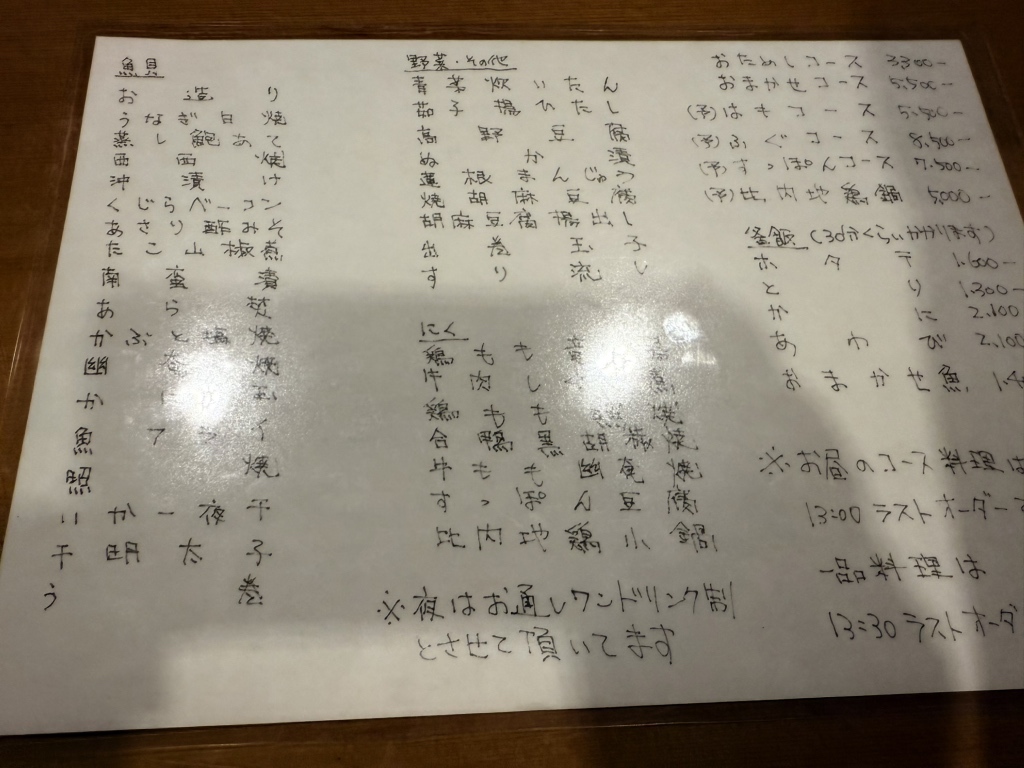 魚貝
お造り
うなぎ白焼
蒸し鮑あて
西西焼
沖漬け
くじらベーコン
あさり酢みそ
たこ山椒煮
南蛮漬
あら炊
かぶと塩焼
幽庵焼
か 玉
魚フライ
照焼
いか一夜干
干明太子
う巻
野菜・その他
青菜炊いたん
茄子揚ひたし
高野豆腐
ぬか漬
蓮根まんじゅう
焼胡麻豆腐
胡麻豆腐揚出し
出巻玉子
すり流し
にく
鶏もも
牛肉し 煮
鶏もも 焼
合鴨黒胡椒焼
牛もも幽庵焼
すっぽん豆腐
比内地鶏小鍋
※夜はお通しワンドリンク制
とさせて頂いてます
おためしコース 3300-
おまやせコース 5,500-
(予)はもコース 5,500-
(予)ふぐコース 8,500-
(予)すっぽんコース 7,500-
(予)比内地鶏鍋 5,000-
釜飯(30分くらいかかります)
ホタテ 1,600-
とり 1,300-
かに 2,100
あわび 2,100
おまかせ魚
※お昼のコース料理は
13:00 ラストオーダーで
一品料理は
13:30 ラストオーダ